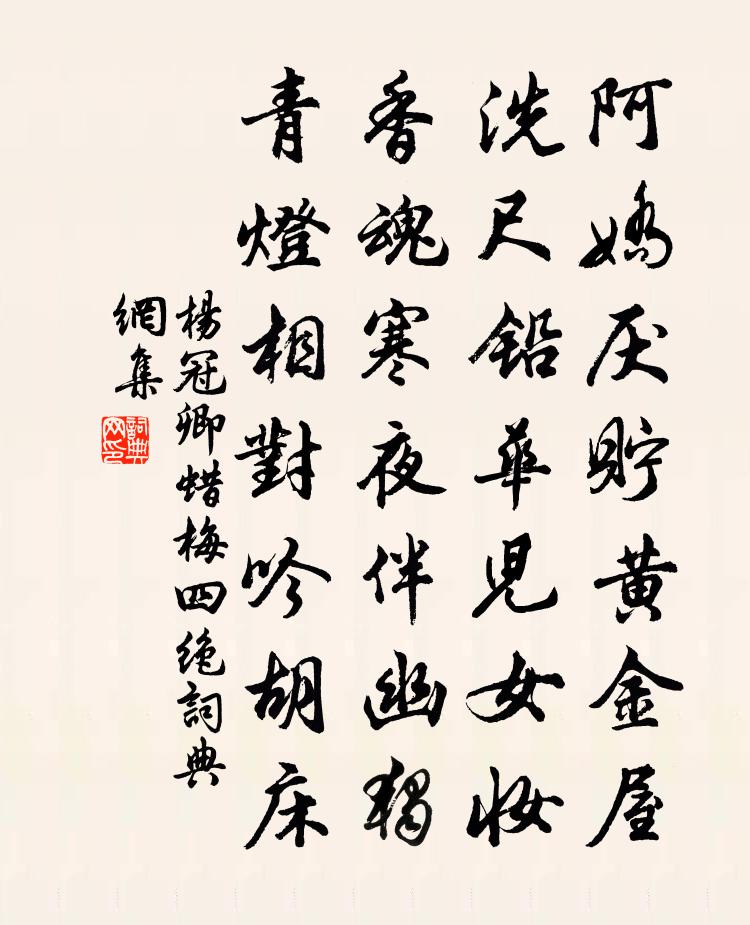 阿嬌厌貯黄金屋
洗尺铅華児女妝
香魂寒夜伴幽獨
青燈相對吟胡床
楊冠卿蜡梅四绝詞典
網集
詞典
网印